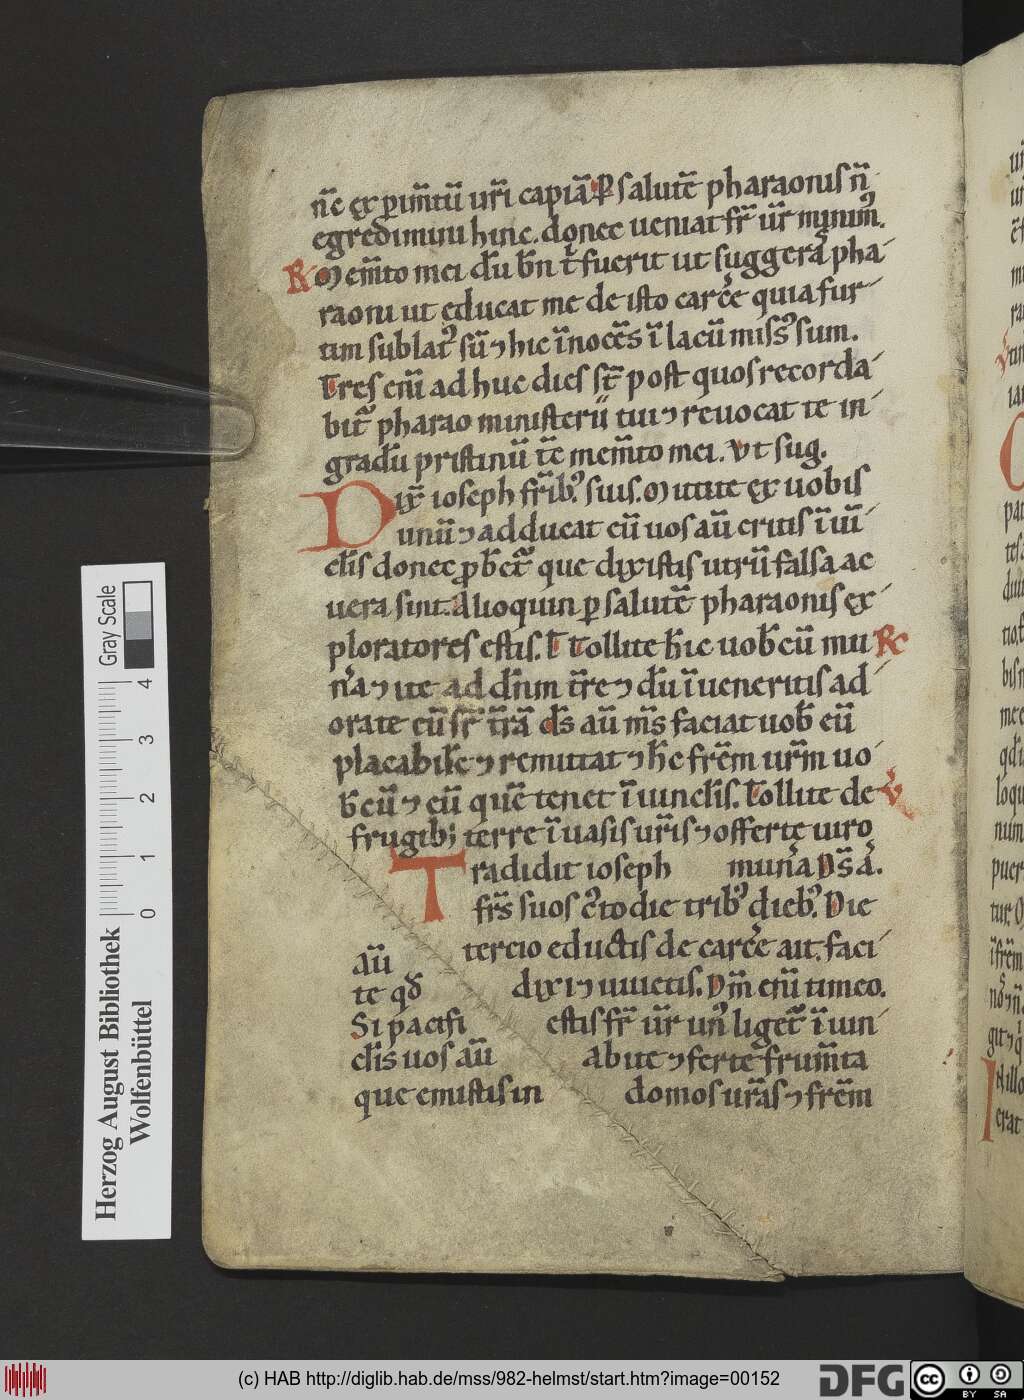 nc̄ ex ꝑim̄tū ur̄i capiā ꝑ salutē pharaonis n̄
egredimini hinc. donec ueniat fr̄ ur̄ minim᷒.
R Mem̄to mei du̅ bn̄ t̄ fuerit ut suggeras pha
raoni ut educat me de isto carcere quia fur
tim sublat᷒ sū ⁊ hic īnocēs ī lacū miss᷒ sum.
Tres eni̅ ad huc dies st̄ post quos recorda
bit᷑ pharao ministerii tui ⁊ reuocat te in
gradu̅ pristinū tē mem̄to mei. Vt sug.
Dix̄ ioseph fr̄ib᷒ suis. Mittite ex uobis
unū ⁊ adducat eū uos aū eritis ī uī
cl̄is donec ꝓbet᷑ que dixistis utrū falsa ac
uera sint. Alioquin ꝑ salutē pharaonis ex
ploratores estis. T̄ Tollite hic uob̄ cū mu R
n̄a ⁊ ite ad dn̄um tr̄e ⁊ du̅ īueneritis ad
orate eū sr̄ tr̄ā ds̄ aū ms̄ faciat uob̄ eū
placabile̅ ⁊ remittat ⁊ hc̄ frēm ur̄m uo
b̄cū ⁊ eū que̅ tenet ī uincl̄is. Tollite de V
frugib; terre ī uasis ur̄is ⁊ offerte uiro
Tradidit ioseph munera Ds̄ a̅.
fr̄s suos c̄todie trib᷒ dieb᷒. Die
aū tercio eductis de carcere ait. faci
te qd̄ dixi ⁊ uiuetis. Dm̄ eni̅ timeo.
Si pacifi estis fr̄ ur̄ un᷒ liget᷑ ī uin
cl̄is uos aū abite ⁊ ferte frum̄ta
que emistis in domos ur̄as ⁊ frēm
Gray Scale
0 1 2 3 4
Herzog August Bibliothek
Wolfenbüttel
(c) HAB http://diglib.hab.de/mss/982-helmst/start.htm?image=00152
DFG
cc BY SA